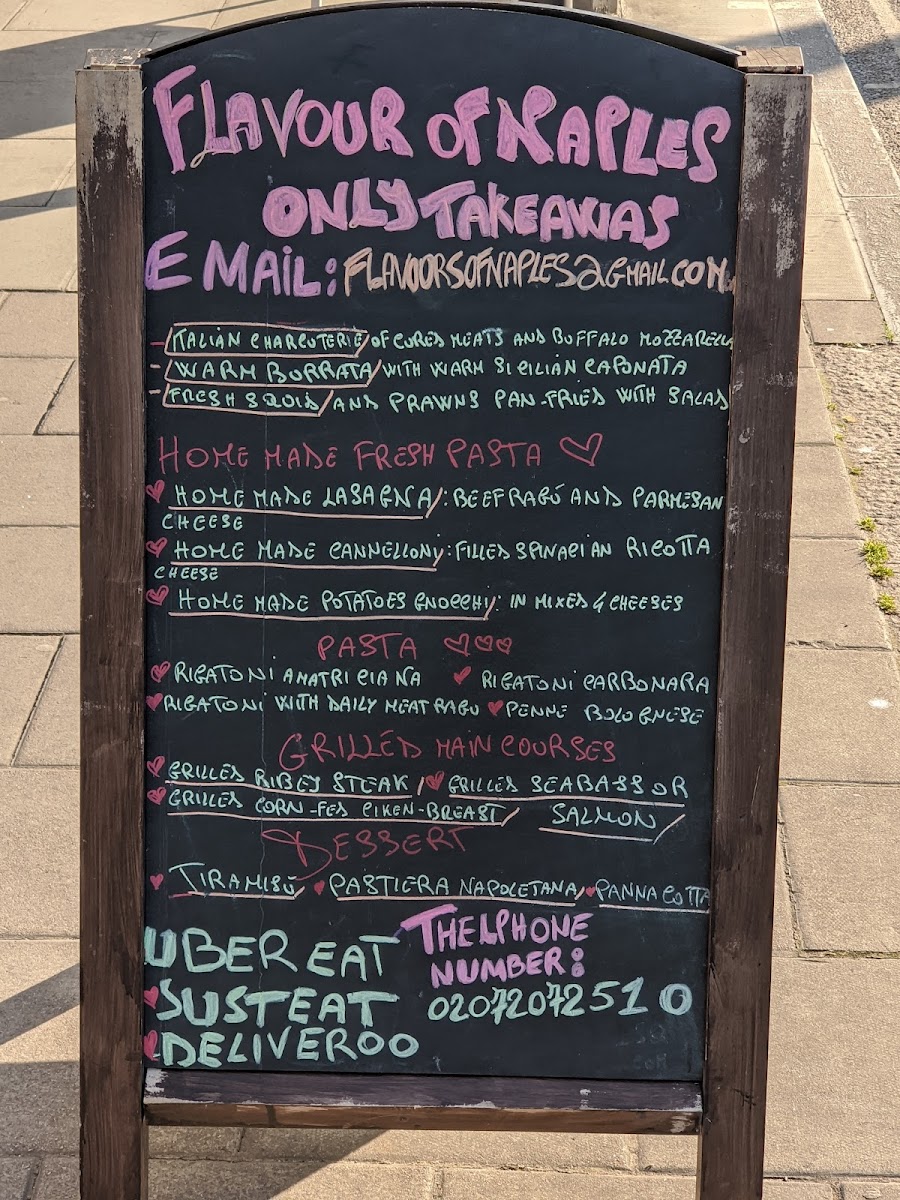 FLAVOUR OF NAPLES
ONLY TAKEAWAS
E MAIL: FLAVOORSOFNAPLES@GMAIL.COM
- ITALIAN CHARCUTERIE OF CURED MEATS AND BUFFALO MOZZARELLA
- WARM BURRATA WITH WARM SICILIAN CAPONATA
- FRESH SQUID AND PRAWNS PAN-FRIED WITH SALAD
HOME MADE FRESH PASTA ♡
♥ HOME MADE LASAGNA: BEEF RAGÚ AND PARMESAN
CHEESE
♥ HOME MADE CANNELLONI: FILLED SPINACI AN RICOTTA
CHEESE
♥ HOME MADE POTATOES GNOCCHI: IN MIXED 4 CHEESES
PASTA ♡♡♡
♥ RIGATONI AMATRICIANA ♥ RIGATONI CARBONARA
♥ RIGATONI WITH DAILY MEAT RAGU ♥ PENNE BOLOGNESE
GRILLED MAIN COURSES
♥ GRILLED RIBEY STEAK / ♥ GRILLED SEABASS OR
♥ GRILLED CORN-FED CIKEN-BREAST / SALMON
DESSERT
♥ TIRAMISÚ ♥ PASTIERA NAPOLETANA ♥ PANNACOTTA
UBER EAT THELPHONE
NUMBER:
♥ JUSTEAT 02072072510
♥ DELIVEROO